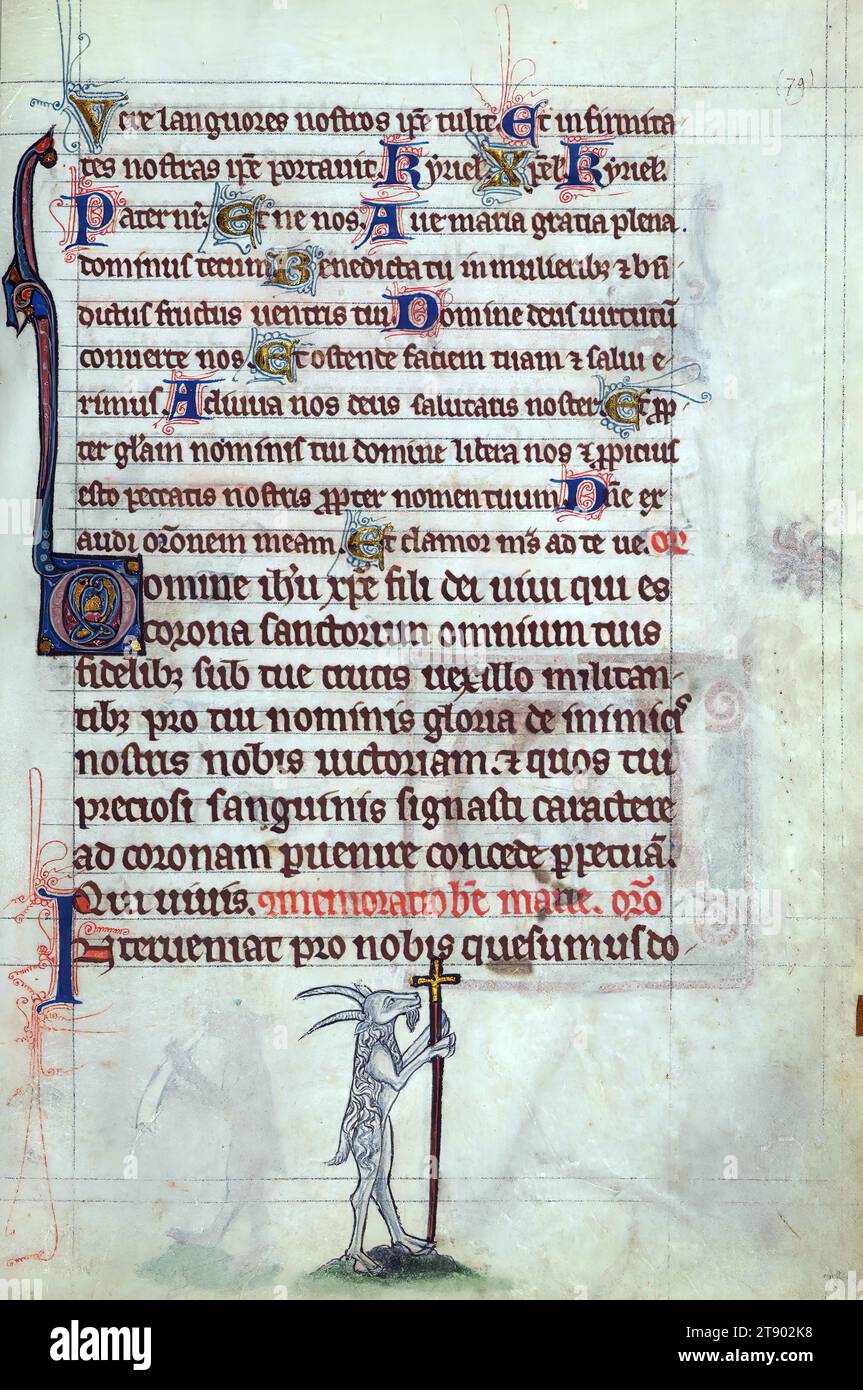 (79)
Vere languores nostros ip̄e tulit Et infirmita
tes nostras ip̄e portauit Kyriel̄ Xp̄el̄ Kyriel̄.
Pater nr̄. Et ne nos. Aue maria gratia plena.
dominus tecum Benedicta tu in mulieribꝫ ⁊ bn̄
dictus fructus uentris tui Domine deus uirtutū
conuerte nos. Et ostende faciem tuam ⁊ salui e
rimus. Adiuua nos deus salutaris noster Et ꝓp
ter gl̄am nominis tui domine libera nos ⁊ ꝓpicius
esto peccatis nostris ꝓpter nomen tuum Dn̄e ex
audi orōnem meam. Et clamor ms̄ ad te ue. or
Domine ih̄u xp̄e fili dei uiui qui es
corona sanctorum omnium tuis
fidelibꝫ sub tue crucis uexillo militan
tibꝫ pro tui nominis gloria de inimicis
nostris nobis uictoriam. ⁊ quos tui
preciosi sanguinis signasti caractere
ad coronam ꝑuenire concede ꝑpetuā.
Qui uiuis. memoratio be͞ marie. orō
Interueniat pro nobis quesumus do
alamy
Image ID: 2T902K8
www.alamy.com